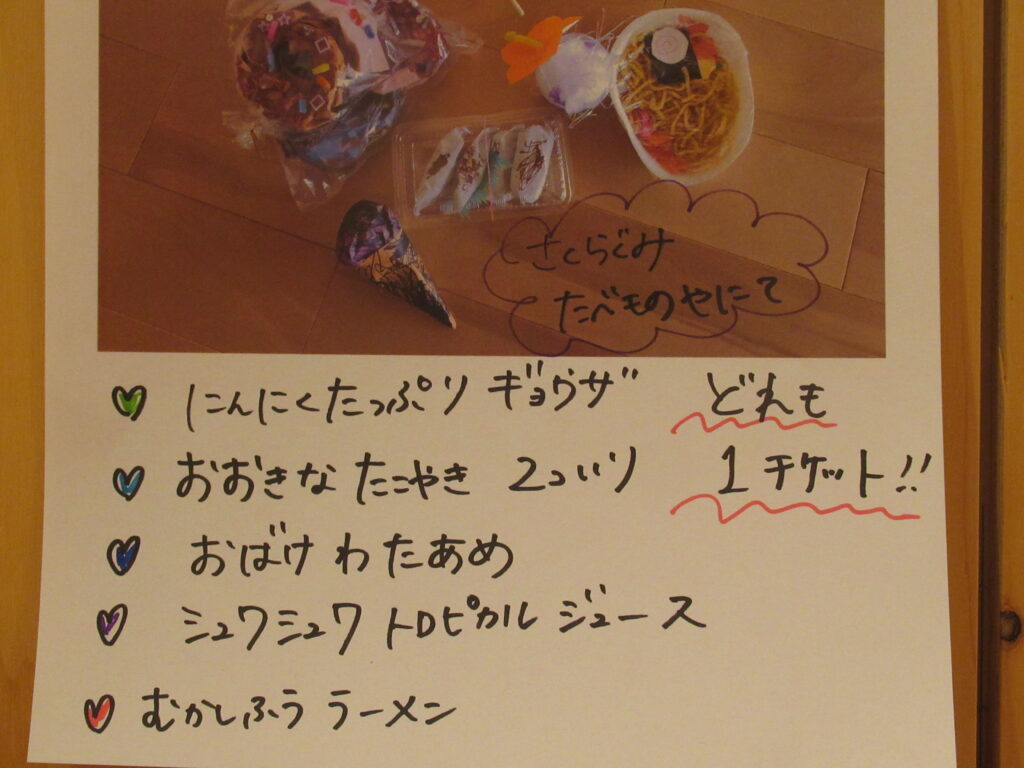 さくらぐみ
たべものやにて
にんにくたっぷり ギョウザ
どれも
おおきな たこやき 2ついり
1チケット!!
おばけ わたあめ
シュワシュワ トロピカル ジュース
むかしふう ラーメン